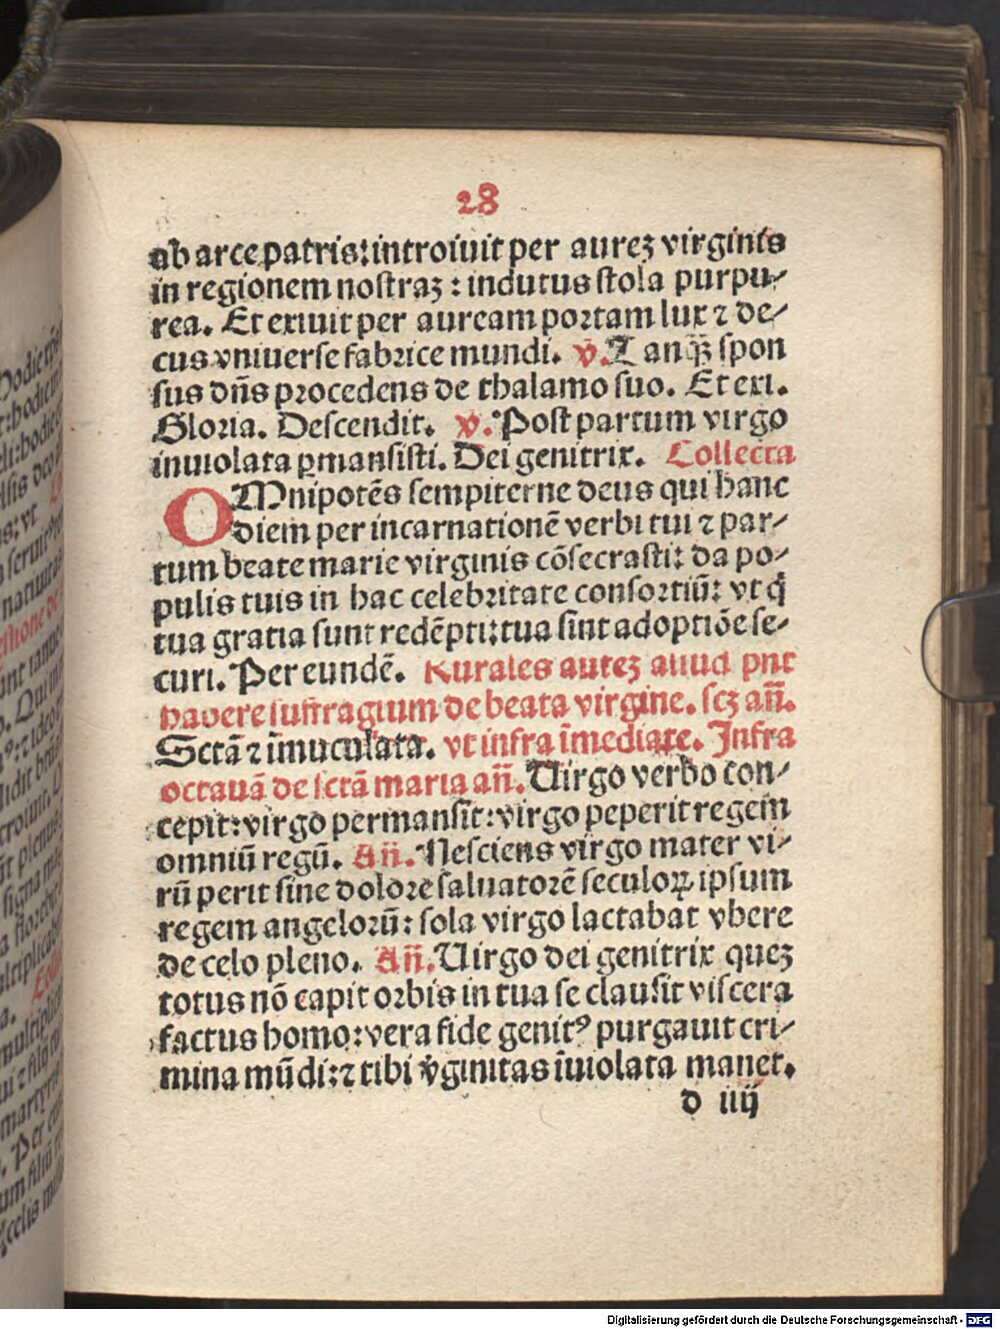 28
ab arce patris: introiuit per aureꝫ virginis
in regionem nostraꝫ : indutus stola purpu⸗
rea. Et exiuit per auream portam lux ⁊ de⸗
cus vniuerse fabrice mundi. ℣. Tanꝙ̃ spon
sus dñs procedens de thalamo suo. Et exi.
Gloria. Descendit. ℣. Post partum virgo
inuiolata ꝑmansisti. Dei genitrix. Collecta
OMnipotẽs sempiterne deus qui hanc
diem per incarnationẽ verbi tui ⁊ par⸗
tum beate marie virginis cõsecrasti: da po⸗
pulis tuis in hac celebritate consortiũ: vt q̃
tua gratia sunt redẽpti: tua sint adoptiõe se⸗
curi. Per eundẽ. Rurales auteꝫ aliud pñt
havere suffragium de beata virgine. scꝫ añ.
Sctã ⁊ ĩmuculata. vt infra ĩmediate. Infra
octauã de sctã maria añ. Uirgo verbo con⸗
cepit: virgo permansit: virgo peperit regem
omniũ regũ. Añ. Nesciens virgo mater vi⸗
rũ perit sine dolore saluatorẽ seculoꝝ ipsum
regem angelorũ: sola virgo lactabat vbere
de celo pleno. Añ. Uirgo dei genitrix queꝫ
totus nõ capit orbis in tua se clausit viscera
factus homo: vera fide genitꝰ purgauit cri⸗
mina mũdi: ⁊ tibi v̾ginitas ĩuiolata manet.
d iiij
Digitalisierung gefördert durch die Deutsche Forschungsgemeinschaft - DFG